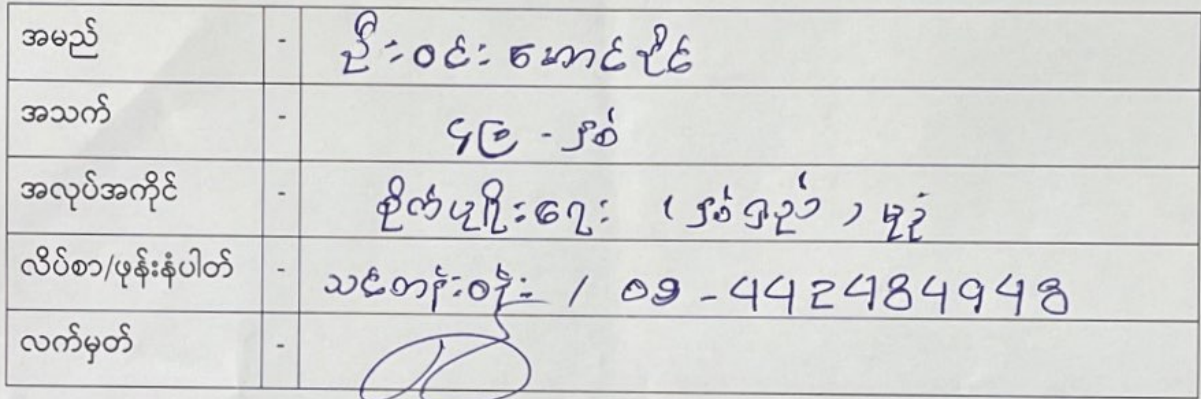 အမည် - ဦးဝင်းအောင်ပိုင်
အသက် - ၄၉ - နှစ်
အလုပ်အကိုင် - စိုက်ပျိုးရေး (နှစ်ရှည်) မြုံ
လိပ်စာ/ဖုန်းနံပါတ် - သင်တန်းဝန်း / 09 - 442484948
လက်မှတ် -